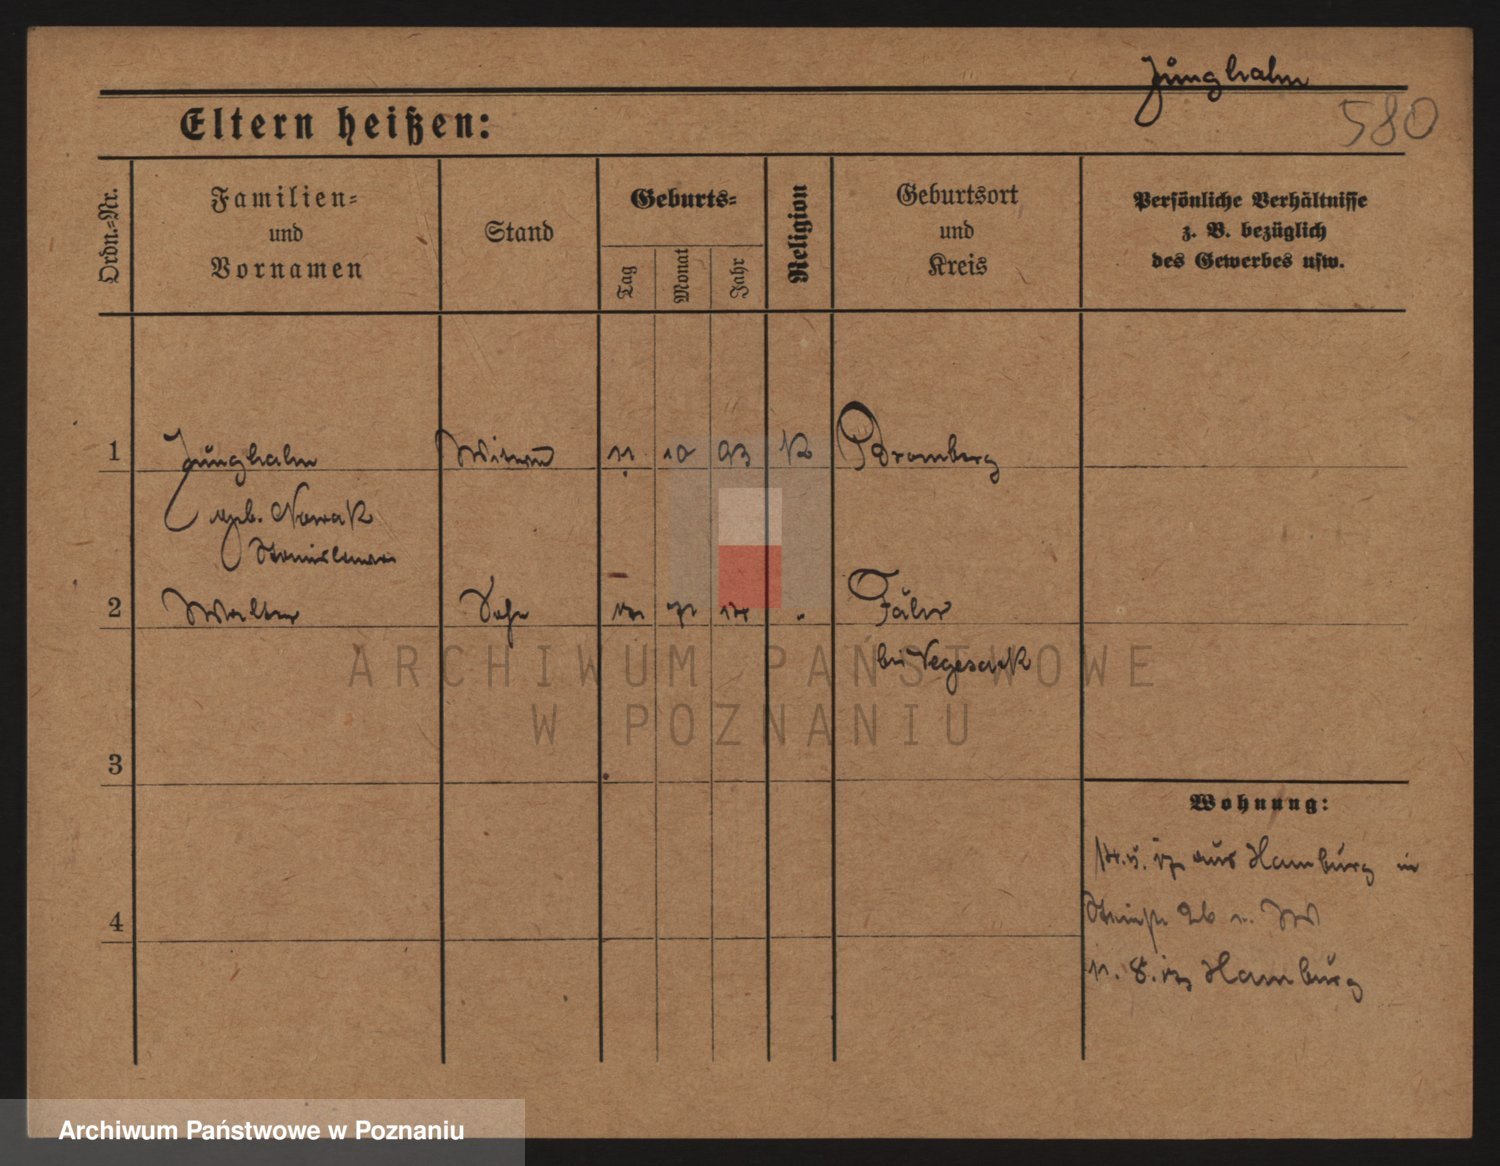 Junghahn
580
Eltern heißen:
Ordn.-Nr.
Familien-
und
Vornamen
Stand
Geburts-
Tag
Monat
Jahr
Religion
Geburtsort
und
Kreis
Persönliche Verhältnisse
z. B. bezüglich
des Gewerbes usw.
1 Junghahn Witwe 11 10 93 K Bromberg
geb. Nowak
Stanislawa
2 Walter Sohn 14 Fähr
bei Vegesack
3
4
Wohnung:
aus Hamburg in
26
11. 8. Hamburg
ARCHIWUM PAŃSTWOWE
W POZNANIU
Archiwum Państwowe w Poznaniu